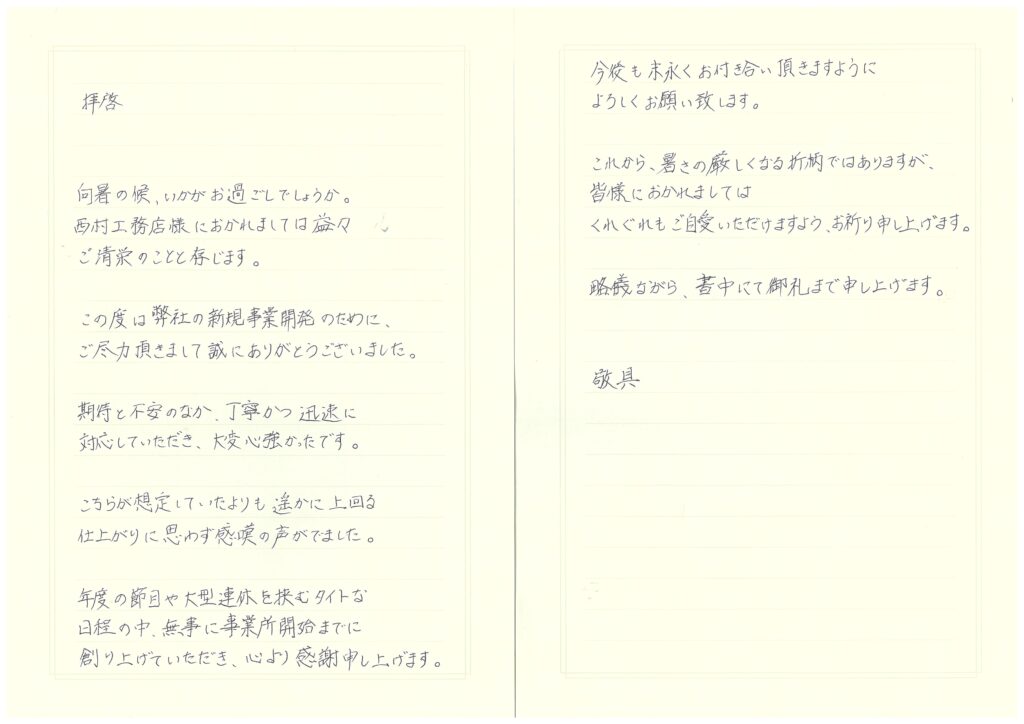 拝啓
向暑の候、いかがお過ごしでしょうか。
西村工務店様におかれましては益々
ご清栄のことと存じます。
この度は弊社の新規事業開発のために、
ご尽力頂きまして誠にありがとうございました。
期待と不安のなか、丁寧かつ迅速に
対応していただき、大変心強かったです。
こちらが想定していたよりも遥かに上回る
仕上がりに思わず感嘆の声がでました。
年度の節目や大型連休を挟むタイトな
日程の中、無事に事業所開始までに
創り上げていただき、心より感謝申し上げます。
今後も末永くお付き合い頂きますように
よろしくお願い致します。
これから、暑さの厳しくなる折柄ではありますが、
皆様におかれましては
くれぐれもご自愛いただけますよう、お祈り申し上げます。
略儀ながら、書中にて御礼まで申し上げます。
敬具